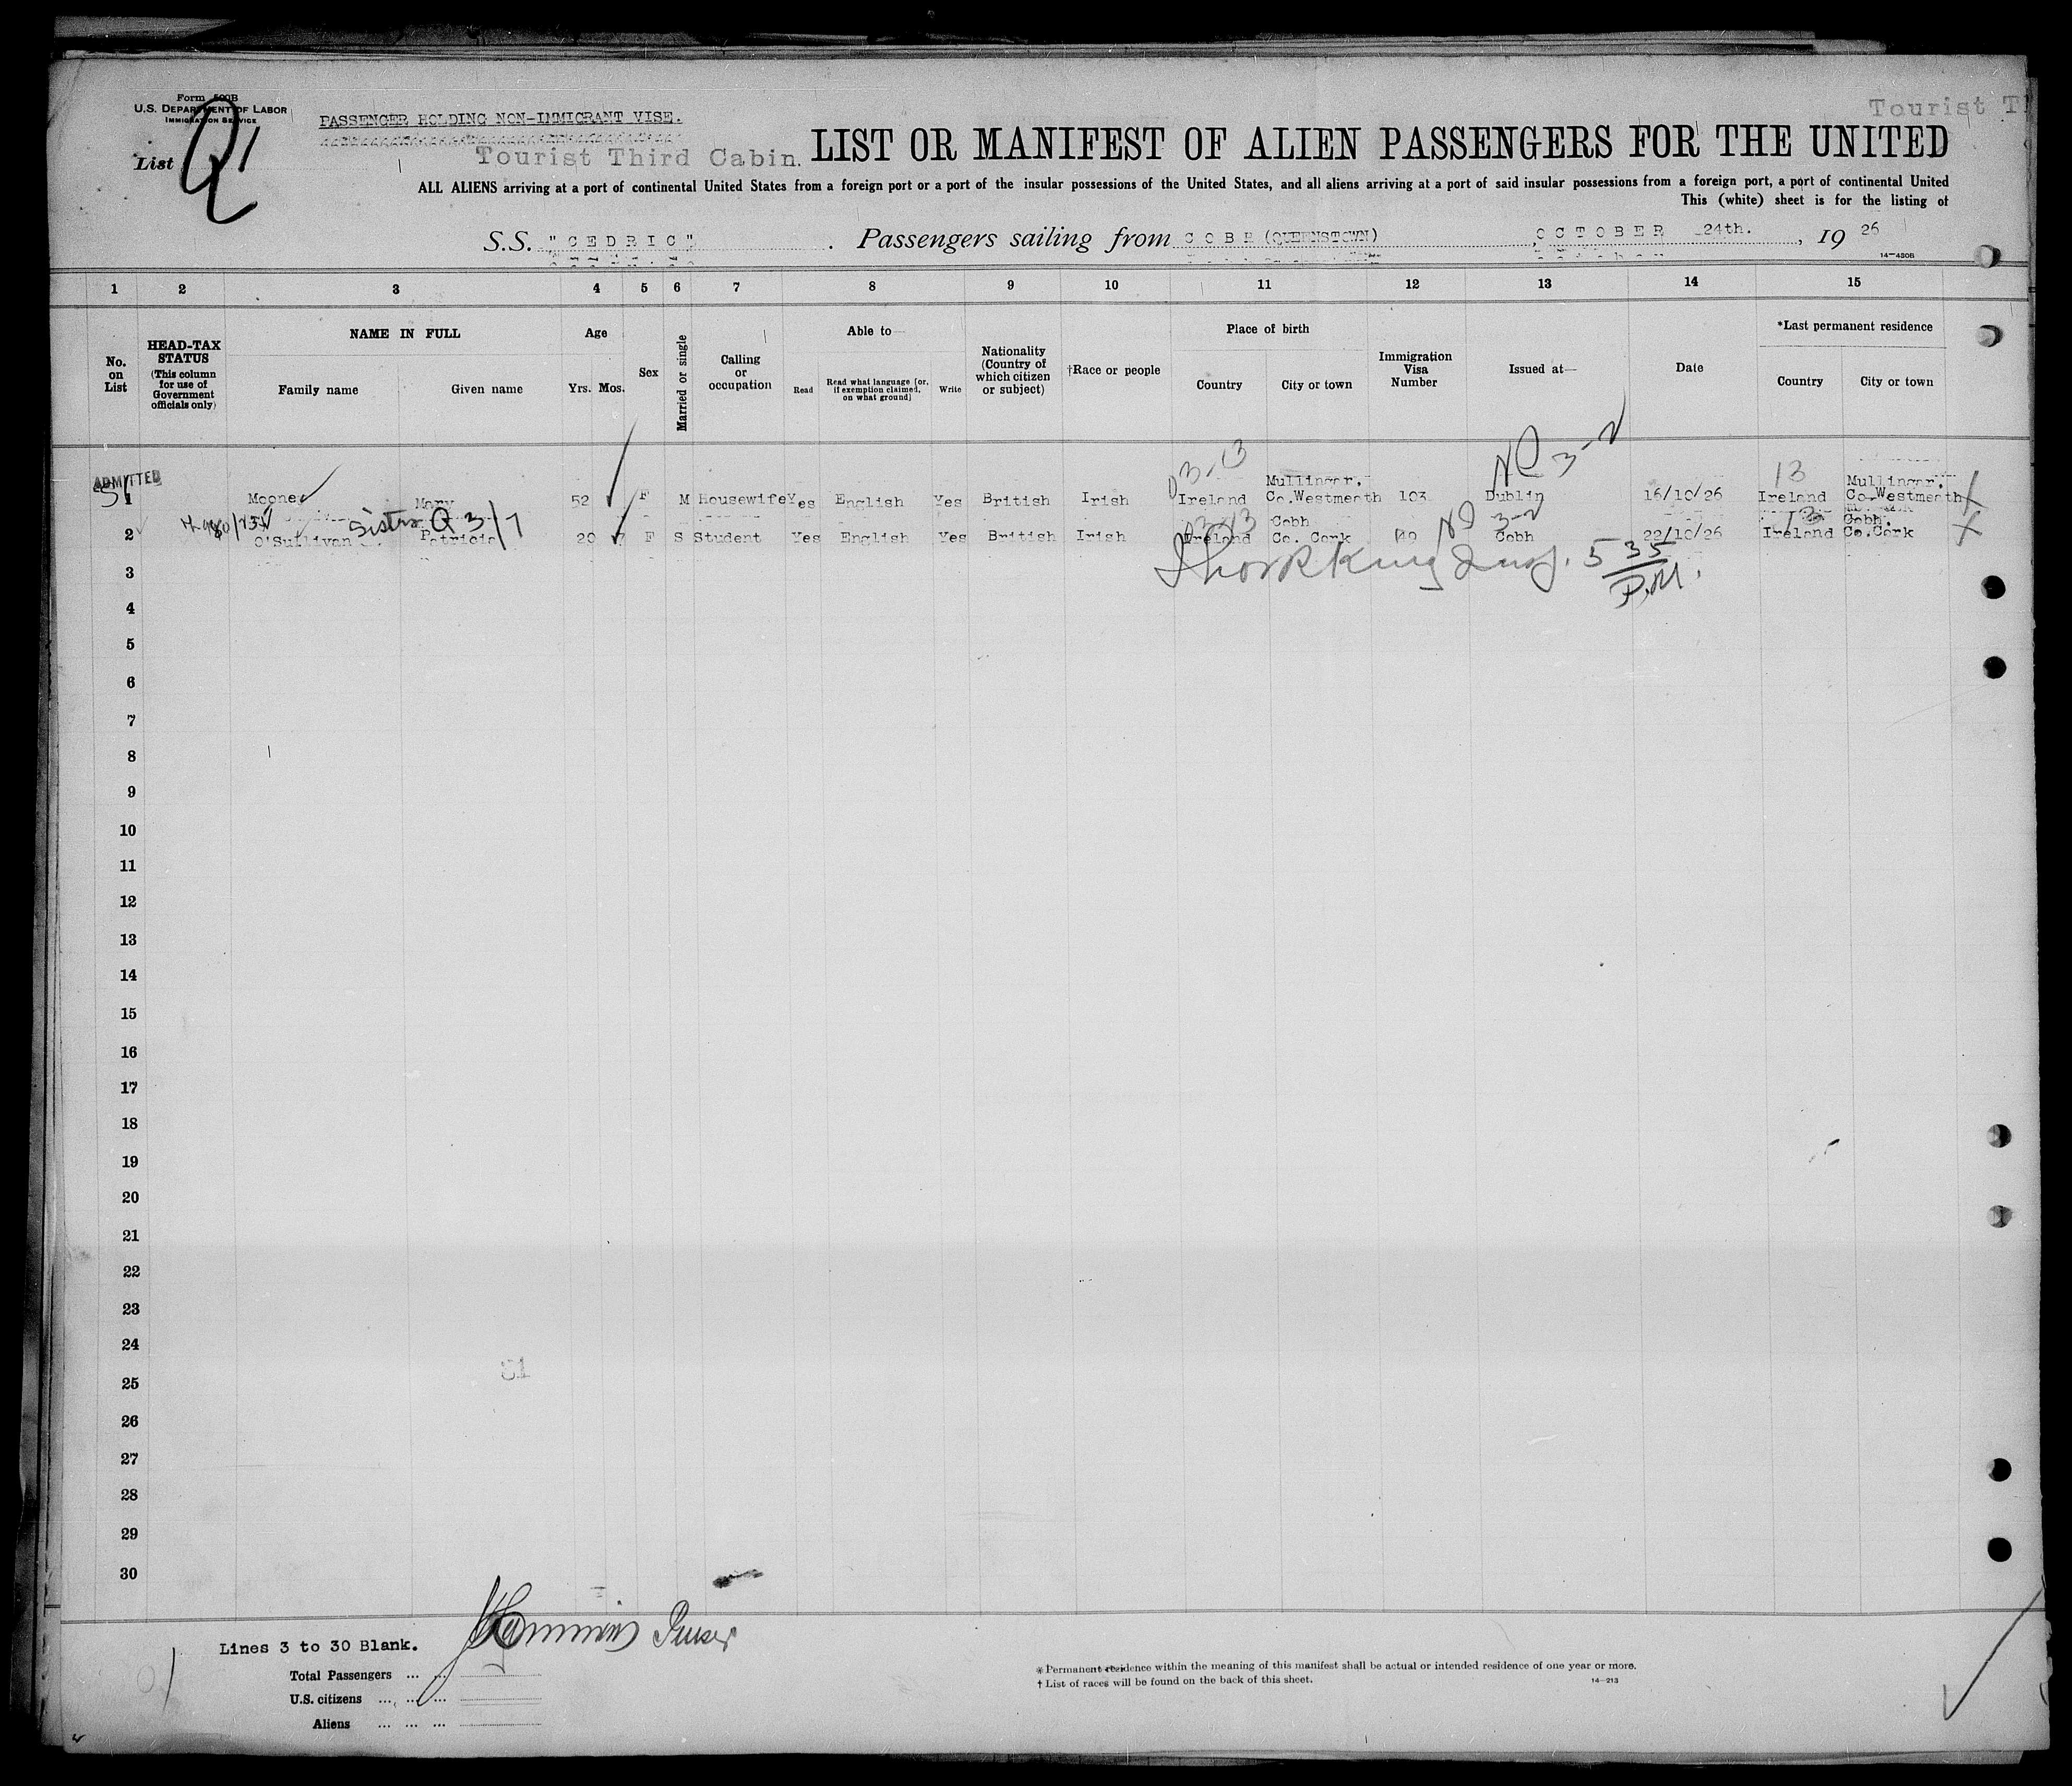 Form 500B
U.S. DEPARTMENT OF LABOR
IMMIGRATION SERVICE
List Q1
PASSENGER HOLDING NON-IMMIGRANT VISE.
Tourist Third Cabin.
Tourist T
LIST OR MANIFEST OF ALIEN PASSENGERS FOR THE UNITED
ALL ALIENS arriving at a port of continental United States from a foreign port or a port of the insular possessions of the United States, and all aliens arriving at a port of said insular possessions from a foreign port, a port of continental United
This (white) sheet is for the listing of
S.S. "CEDRIC". Passengers sailing from COBH (QUEENSTOWN), OCTOBER 24th., 1926
14—430B
1 2 3 4 5 6 7 8 9 10 11 12 13 14 15
No. on List
HEAD-TAX STATUS (This column for use of Government officials only)
NAME IN FULL
Family name Given name
Age
Yrs. Mos.
Sex
Married or single
Calling or occupation
Able to—
Read Read what language [or, if exemption claimed, on what ground] Write
Nationality (Country of which citizen or subject)
†Race or people
Place of birth
Country City or town
Immigration Visa Number
Issued at—
Date
*Last permanent residence
Country City or town
ADMITTED
03-13 NQ 3-2 13
1 Mooney Mary 52 F M Housewife Yes English Yes British Irish Ireland Mullingar. Co.Westmeath 103 Dublin 16/10/26 Ireland Mullingar. Co.Westmeath X
sister Q 3/7
2 O'Sullivan Patricia 20 F S Student Yes English Yes British Irish Ireland Cobh Co. Cork Cobh 22/10/26 Ireland Cobh. Co.Cork X
5 35 P.M.
3
4
5
6
7
8
9
10
11
12
13
14
15
16
17
18
19
20
21
22
23
24
25
26
27
28
29
30
Lines 3 to 30 Blank.
Purser
Total Passengers ... ...
U.S. citizens ... ... ...
Aliens ... ... ...
* Permanent residence within the meaning of this manifest shall be actual or intended residence of one year or more.
† List of races will be found on the back of this sheet.
14—213